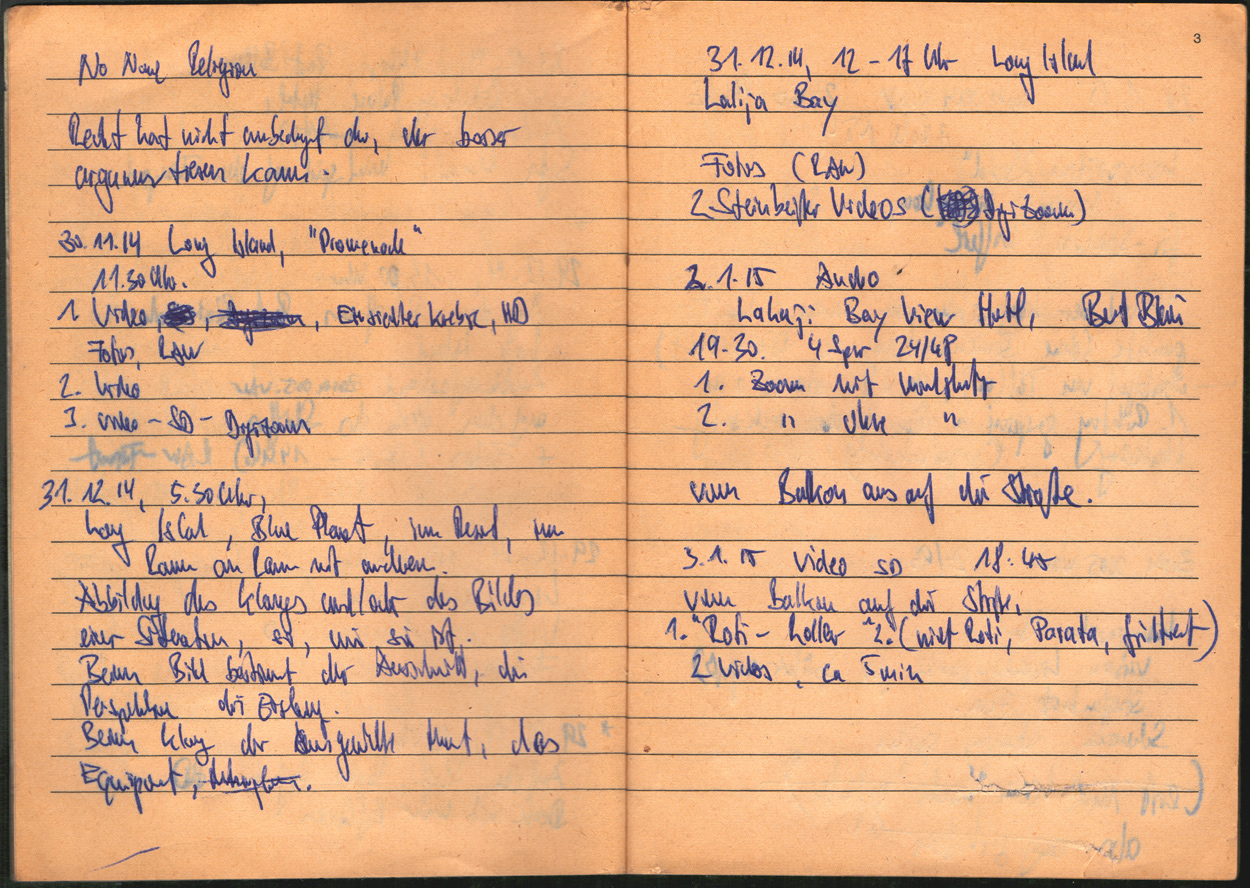 No Name Religion
Recht hat nicht unbedingt der, der besser
argumentieren kann.
30.11.14 Long Island, "Promenade"
11.30 Uhr.
1. Video, , Einsiedler Krebse, HD
Fotos, RAW
2. Video
3. Video - SD - Digizoom
31.12.14, 5.30 Uhr,
Long Island, Blue Planet, im Resort, von
Raum an Raum mit anderen.
Abbildung des Klanges und/oder des Bildes
einer Situation, so, wie sie ist.
Beim Bild bestimmt der Ausschnitt, die
Perspektive die
Beim Klang der Ausgewählte Ort, das
Equipment,
3
31.12.14, 12 - 17 Uhr Long Island
Lalija Bay
Fotos (RAW)
2 Steinbeißer Videos ( Digizoom)
2.1.15 Audio
Lalaji Bay View Hotel, Port Blair
19.30. 4 Spur 24/48
1. Zoom mit Windschutz
2. " ohne "
vom Balkon aus auf die Straße.
3.1.15 Video SD 18.45
vom Balkon auf die Straße.
1. "Roti - Roller" 2. (niet Roti, Parata, frittiert)
2 Videos, ca 5 min